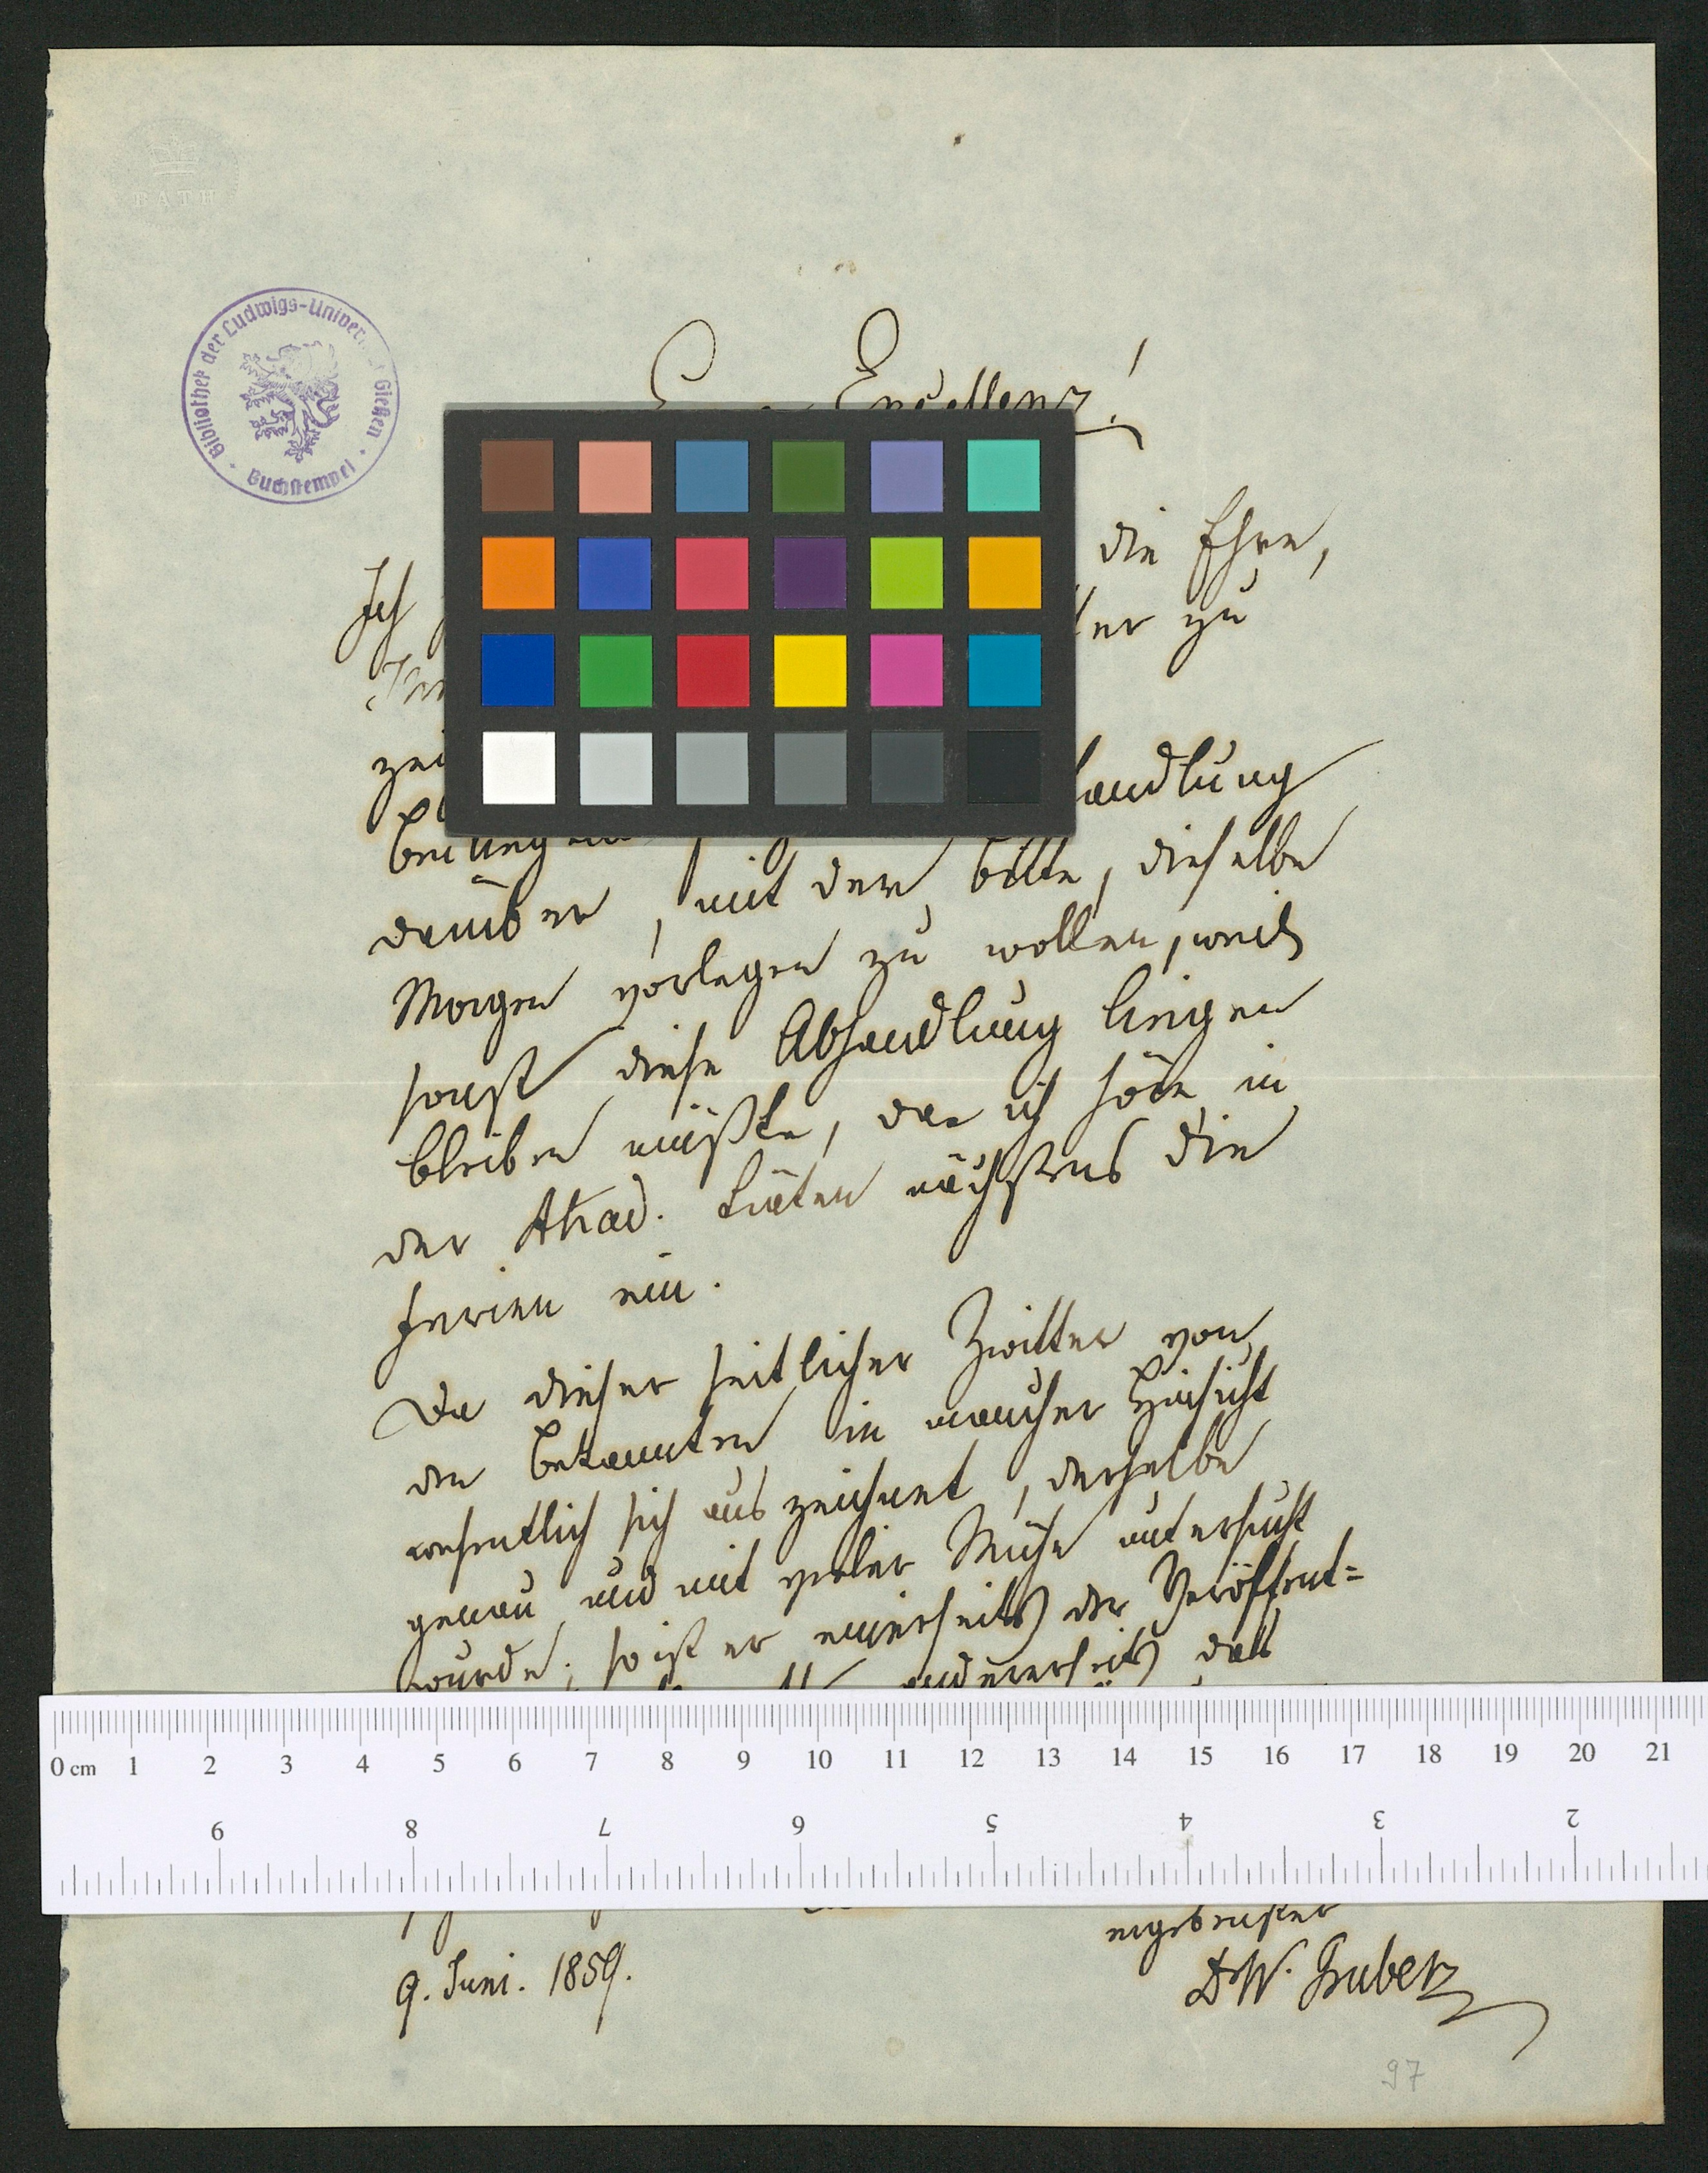 BATH
Bibliothek der Ludwigs-Univer Gießen
Buchstempel
Excellenz!
Ich die Ehre,
ter zu
zei
handlung
darüber, mit der Bitte, dieselbe
Morgen vorlegen zu wollen, weil
sonst diese Abhandlung liegen
bleiben müßte, da ich höre in
der Akad. träten nächstens die
Ferien ein.
Da dieser seitlicher Zwitter von
den bekannten in mancher Hinsicht
wesentlich sich auszeichnet, derselbe
genau und mit vieler Mühe untersucht
wurde; so ist er einerseits der Veröffent=
andererseits daß
0 cm 1 2 3 4 5 6 7 8 9 10 11 12 13 14 15 16 17 18 19 20 21
9 8 7 6 5 4 3 2
ergebenster
9. Juni. 1859.
Dr W. Gruber
97